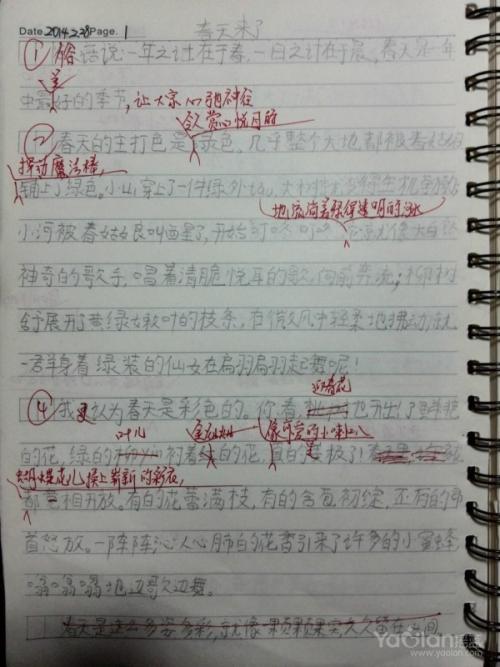 春天来了
Date 2014.2.28 Page. 1
① 俗语说:一年之计在于春,一日之计在于晨,春天是一年
中最美好的季节,让大家心驰神往
令人赏心悦目的
② 春天的主打色是绿色。几乎整个大地都被春姑娘
挥动魔法棒,
铺上了绿色。小山穿上了一件绿外
地流淌着绿得透明的
小河被春姑娘叫醒了,开始叮咚叮咚
神奇的歌手,唱着清脆悦耳的歌,向前奔流;柳树
舒展开了黄绿嫩叶的枝条,在微风中轻柔地摆动,就
一群身着绿装的仙女在翩翩起舞呢!
迎春花
④ 我更认为春天是彩色的。你看,也开出了鲜艳
叶儿
像可爱的小喇叭
的花,绿的衬着的花,真的美极了
蝴蝶花儿换上崭新的新衣,
都竞相开放。有的花蕾满枝,有的含苞初绽,还有的昂
首怒放。一阵阵沁人心脾的花香引来了许多的小蜜蜂,
嗡嗡嗡地边歌边舞。
春天是这么多姿多彩,就像
YaoLan摇篮
www.yaolan.com